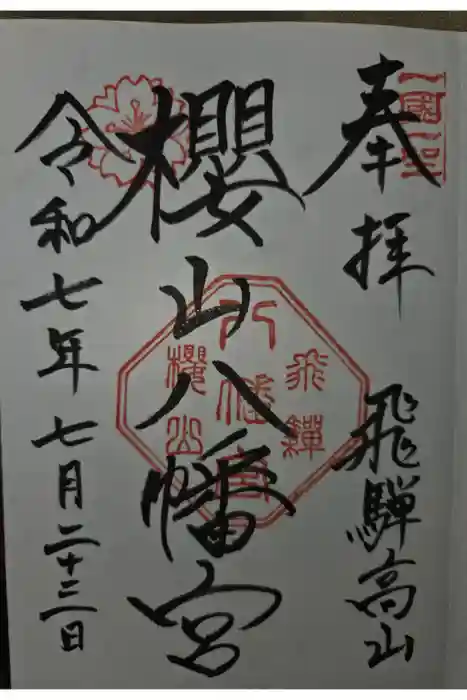 奉拝 飛騨高山
櫻山八幡宮
令和七年七月二十三日
一國一社
飛騨
八幡宮
櫻山